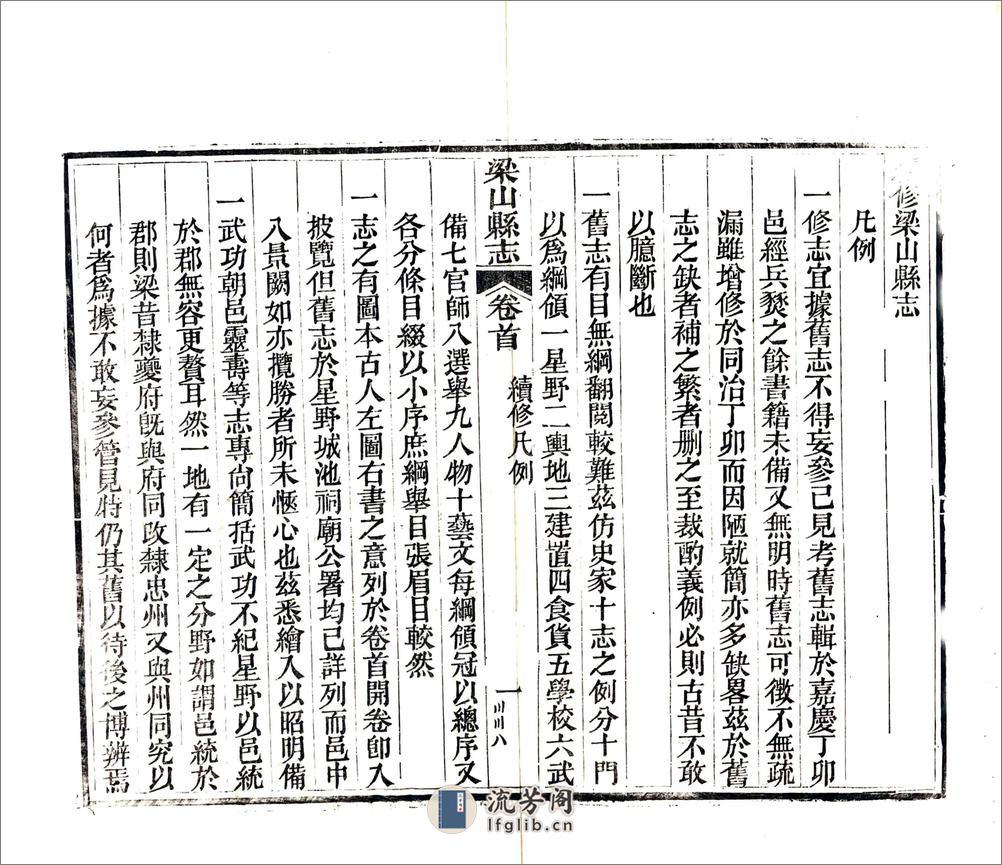 修梁山縣志
凡例
一修志宜據舊志不得妄參己見考舊志輯於嘉慶丁卯
邑經兵燹之餘書籍未備又無明時舊志可徵不無疏
漏雖增修於同治丁卯而因陋就簡亦多缺畧茲於舊
志之缺者補之繁者删之至裁酌義例必則古昔不敢
以臆斷也
一舊志有目無綱翻閱較難茲仿史家十志之例分十門
以爲綱領一星野二輿地三建置四食貨五學校六武
梁山縣志
卷首
續修凡例
一
備七官師八選舉九人物十藝文每綱領冠以總序又
各分條目綴以小序庶綱舉目張眉目較然
一志之有圖本古人左圖右書之意列於卷首開卷卽入
披覽但舊志於星野城池祠廟公署均已詳列而邑中
八景闕如亦攬勝者所未愜心也茲悉繪入以昭明備
一武功朝邑靈壽等志專尙簡括武功不紀星野以邑統
於郡無容更贅耳然一地有一定之分野如謂邑統於
郡則梁昔隸夔府旣與府同改隸忠州又與州同究以
何者爲據不敢妄參管見特仍其舊以待後之博辨焉
流芳阁
lfglib.cn